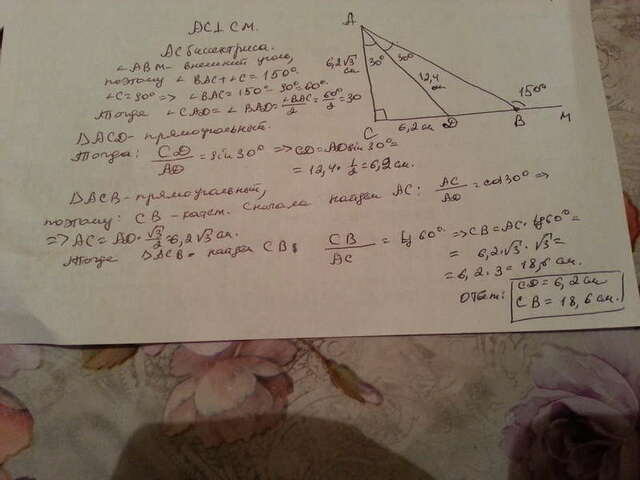 AC⊥CM.
AC биссектриса.
∠ABM - внешний угол,
поэтому ∠BAC+∠C=150°
∠C=90° => ∠BAC=150°-90°=60°.
Тогда ∠CAD=∠BAD=∠BAC/2=60°/2=30
ΔACD - прямоугольный.
Тогда: CD/AD = sin30° => CD=AD sin30°=
= 12,4 · 1/2 = 6,2 см.
ΔACB - прямоугольный,
поэтому: CB - катет. Сначала найдем AC: AC/AD = cos30° =>
=> AC = AD · √3/2 = 6,2√3 см.
Тогда ΔACB найдем CB: CB/AC = tg60° => CB=AC·tg60°=
= 6,2·√3·√3=
= 6,2·3=18,6 см.
Ответ: CD=6,2 см
CB=18,6 см.
A
6,2√3
см
30°
30°
12,4
см
150°
C
6,2 см
D
B
M